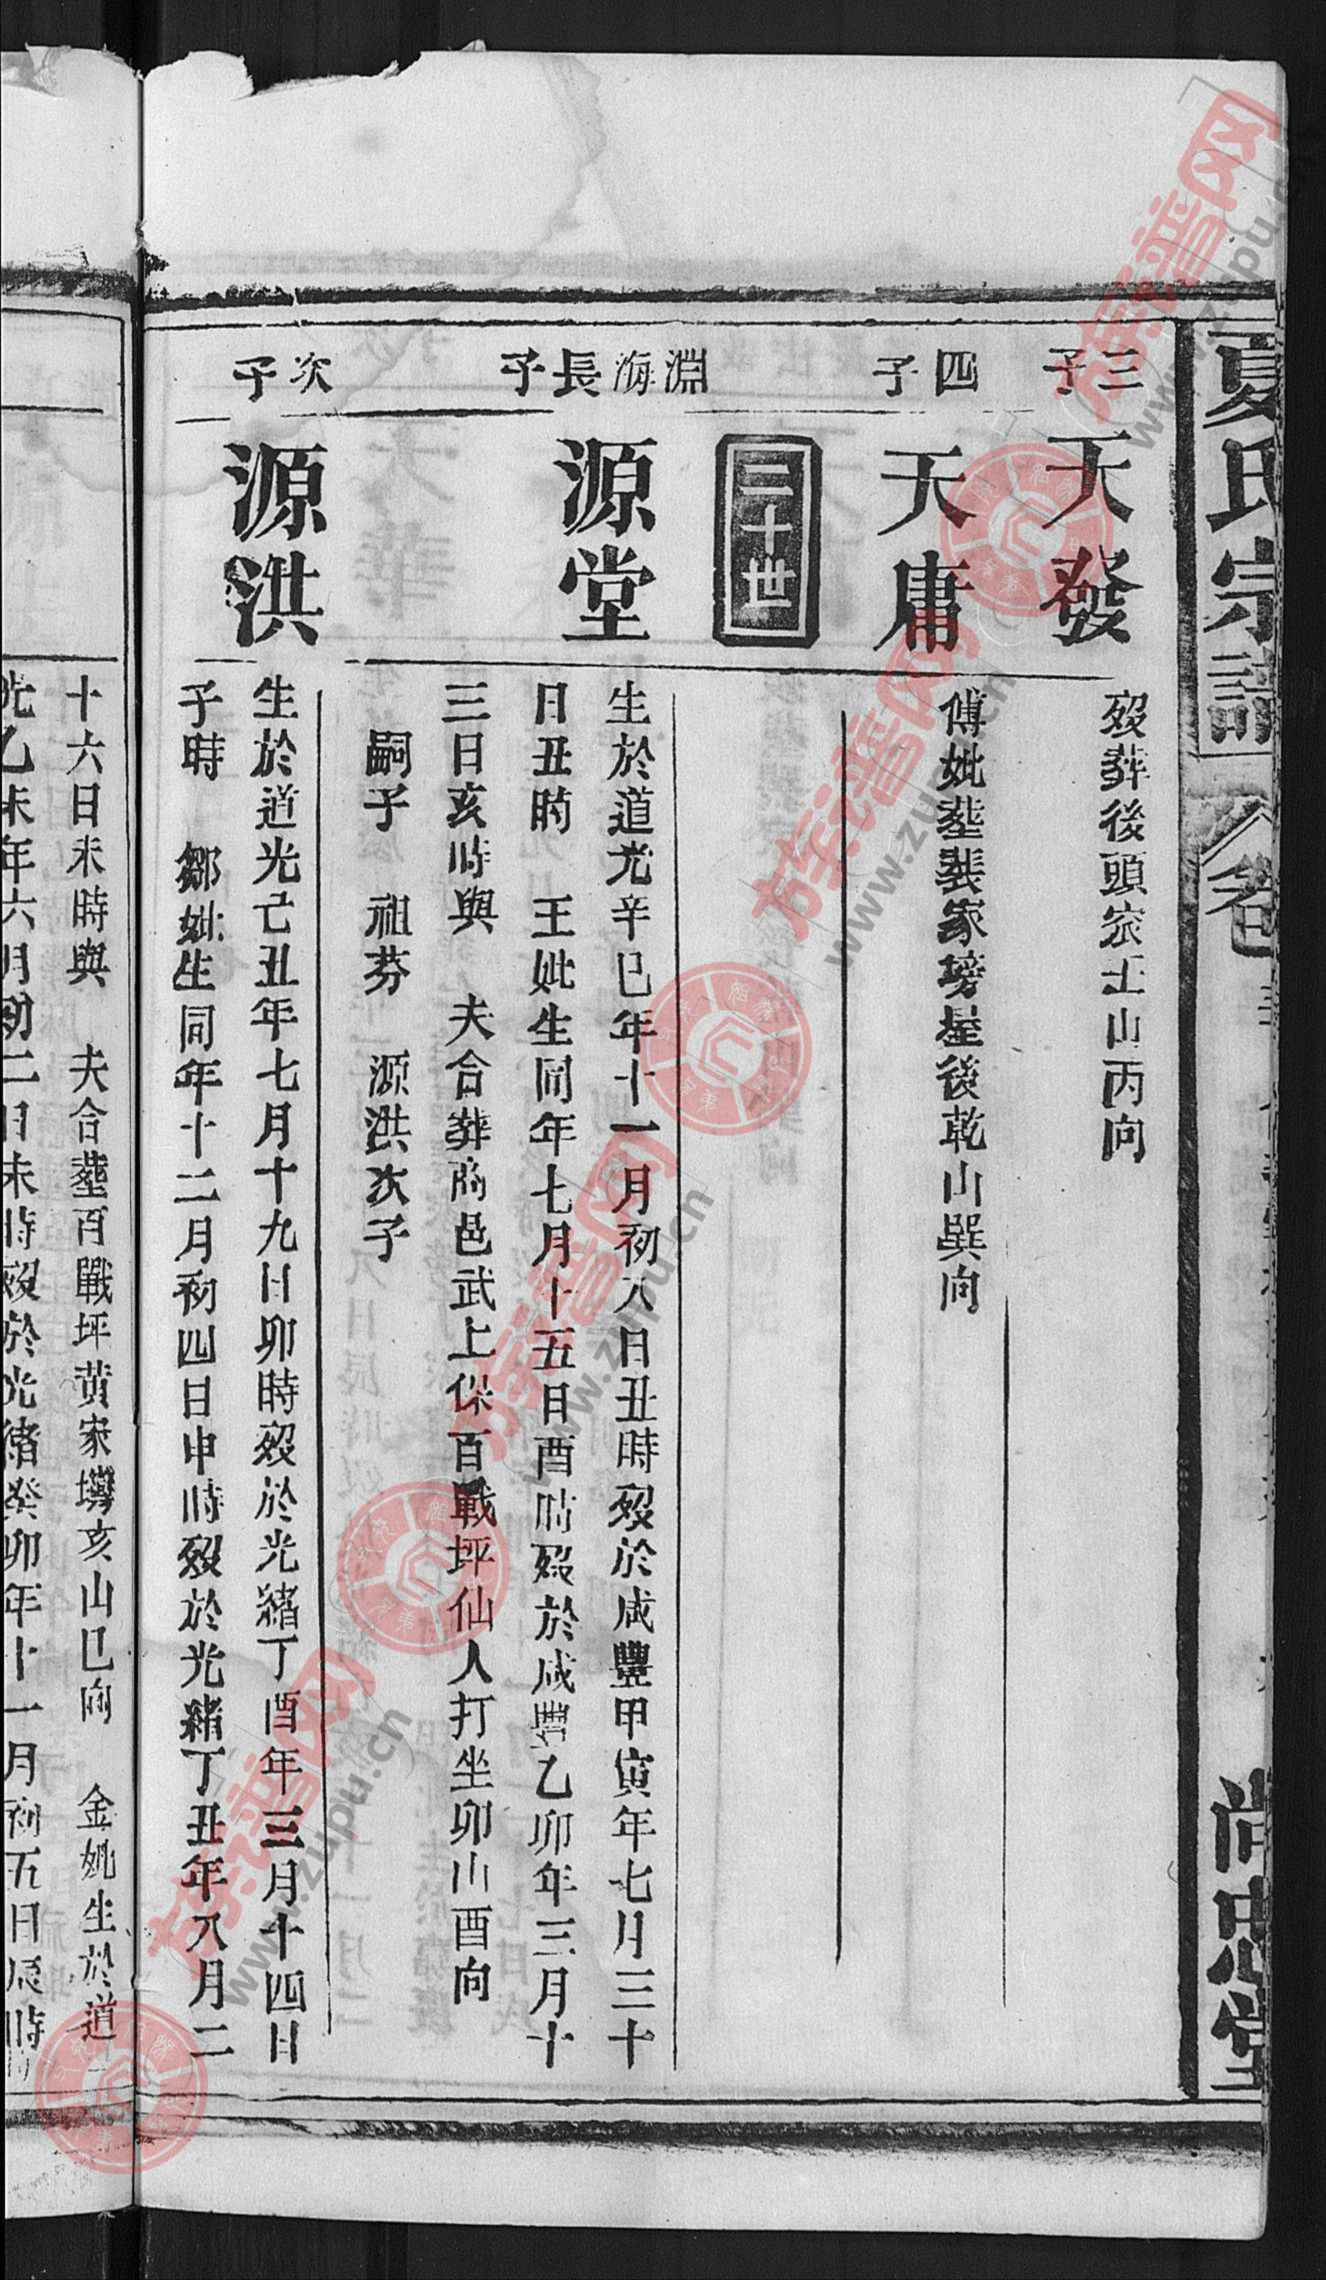 夏氏宗譜
卷
尚忠堂
三子
天發
歿葬後頭宏壬山丙向
四子
天庸
傅妣塟裴家塝屋後乾山巽向
二十世
淵海長子
源堂
生於道光辛巳年十一月初八日丑時歿於咸豐甲寅年七月三十
日丑時 王妣生同年七月十五日酉時歿於咸豐乙卯年三月十
三日亥時與 夫合葬商邑武上保百戰坪仙人打坐卯山酉向
嗣子 祖芬 源洪次子
次子
源洪
生於道光己丑年七月十九日卯時歿於光緒丁酉年三月十四日
子時 鄒妣生同年十二月初四日申時歿於光緒丁丑年八月二
十六日未時與 夫合塟百戰坪黃家塆亥山巳向 金妣生於道
光乙未年六月初二日未時歿於光緒癸卯年十一月初五日辰時
族谱网
www.zupu.cn
族谱网
www.zupu.cn
族谱网
www.zupu.cn
族谱网
www.zupu.cn